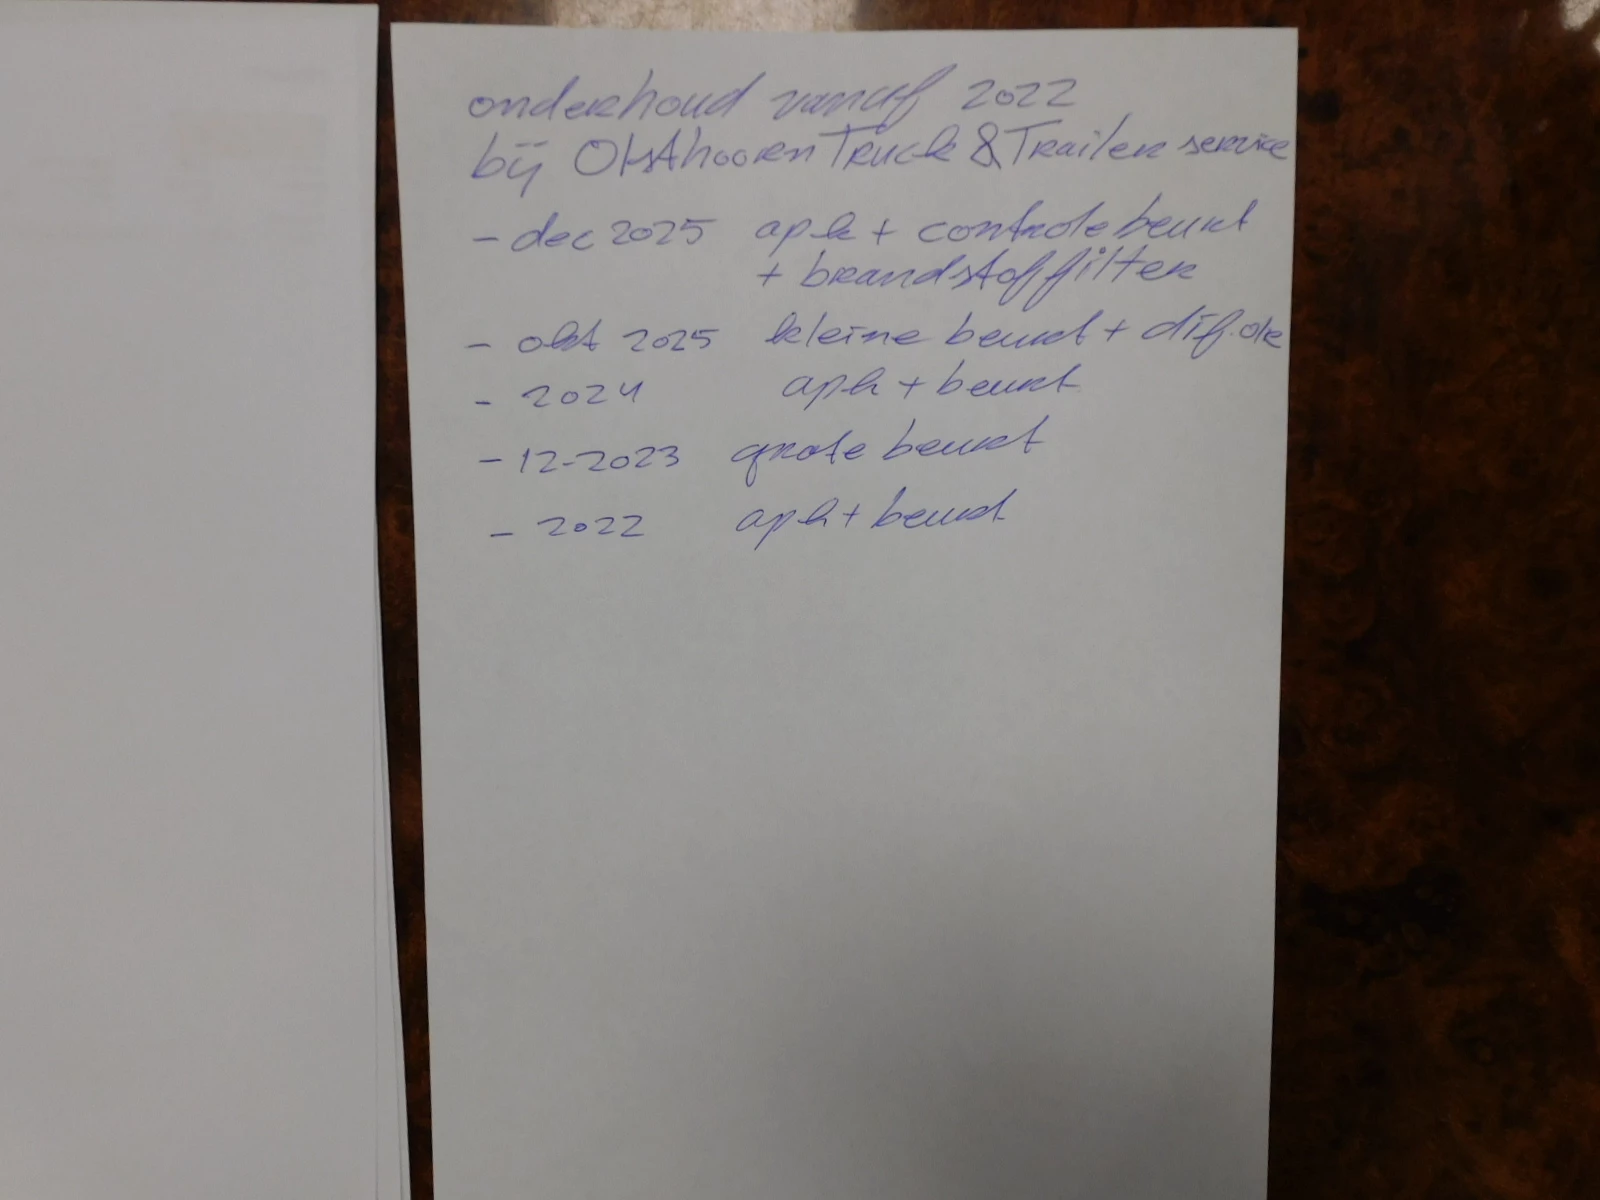 onderhoud vanaf 2022
bij Oltshoorn Truck & Trailer service
- dec 2025 apk + controle beurt
+ brandstoffilter
- okt 2025 kleine beurt + dif. olie
- 2024 apk + beurt
- 12-2023 grote beurt
- 2022 apk + beurt